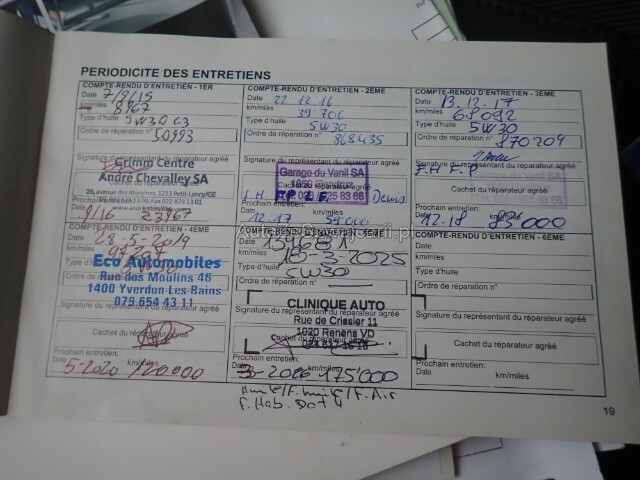 PERIODICITE DES ENTRETIENS
COMPTE-RENDU D'ENTRETIEN - 1ER
Date 7/9/15
km/miles 8967
Type d'huile 5W30 C3
Ordre de réparation n° 50993
Signature du représentant du réparateur agréé
Centre
André Chevalley SA
26, avenue des Morgines, 1213 Petit-Lancy/GE
Prochain entretien:
Date 9/16 km/miles 23967
COMPTE-RENDU D'ENTRETIEN - 2EME
Date 22.12.16
km/miles 39706
Type d'huile 5W30
Ordre de réparation n° 868435
Signature du représentant du réparateur agréé
Garage du Vanil SA
Prochain entretien:
Date 12.17 km/miles 59000
COMPTE-RENDU D'ENTRETIEN - 3EME
Date 13.12.17
km/miles 68092
Type d'huile 5W30
Ordre de réparation n° 870204
Signature du représentant du réparateur agréé
F.H F.P
Cachet du réparateur agréé
Prochain entretien:
Date 12-18 km/miles 83000
COMPTE-RENDU D'ENTRETIEN - 4EME
Date 28-5-2019
km/miles
Type d'huile 5W30
Eco Automobiles
Rue des Moulins 46
1400 Yverdon-Les-Bains
079 654 43 11
Signature du représentant du réparateur agréé
Cachet du réparateur agréé
Prochain entretien:
Date 5-2020 km/miles 120000
COMPTE-RENDU D'ENTRETIEN - 5EME
Date 159681
km/miles 18-3-2025
Type d'huile 5W30
Ordre de réparation n°
Signature du représentant du réparateur agréé
CLINIQUE AUTO
Rue de Crissier 11
1020 Renens VD
Cachet du réparateur agréé
Prochain entretien:
Date 3-2026 km/miles 175'000
COMPTE-RENDU D'ENTRETIEN - 6EME
Date
km/miles
Type d'huile
Ordre de réparation n°
Signature du représentant du réparateur agréé
Cachet du réparateur agréé
Prochain entretien:
Date km/miles
F. Air
F. Hab. Dot 4
19